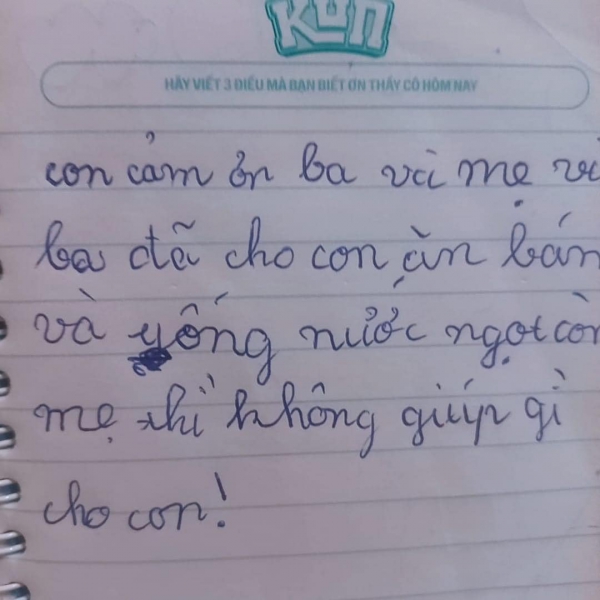 KUN
HÃY VIẾT 3 ĐIỀU MÀ BẠN BIẾT ƠN THẦY CÔ HÔM NAY
con cảm ơn ba và mẹ vì
ba đã cho con ăn bán
và yống nước ngọt còn
mẹ thì không giúp gì
cho con!